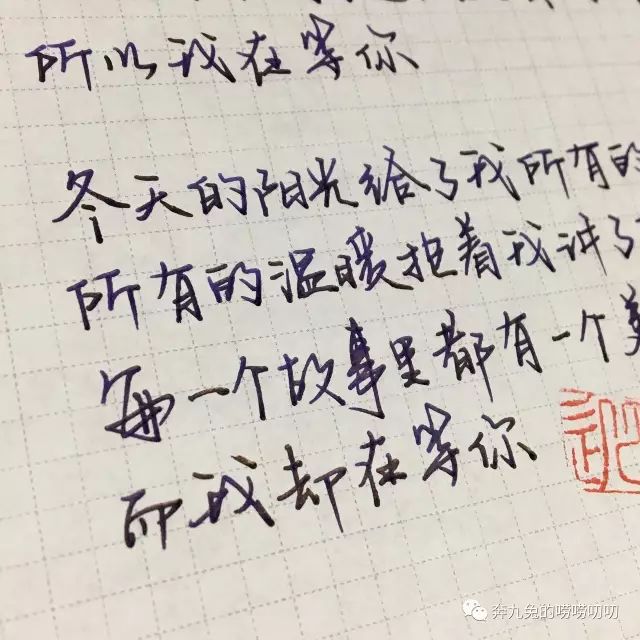 所以我在等你
冬天的阳光给了我所有的
所有的温暖抱着我讲了
每一个故事里都有一个美
而我却在等你
奔九兔的唠唠叨叨